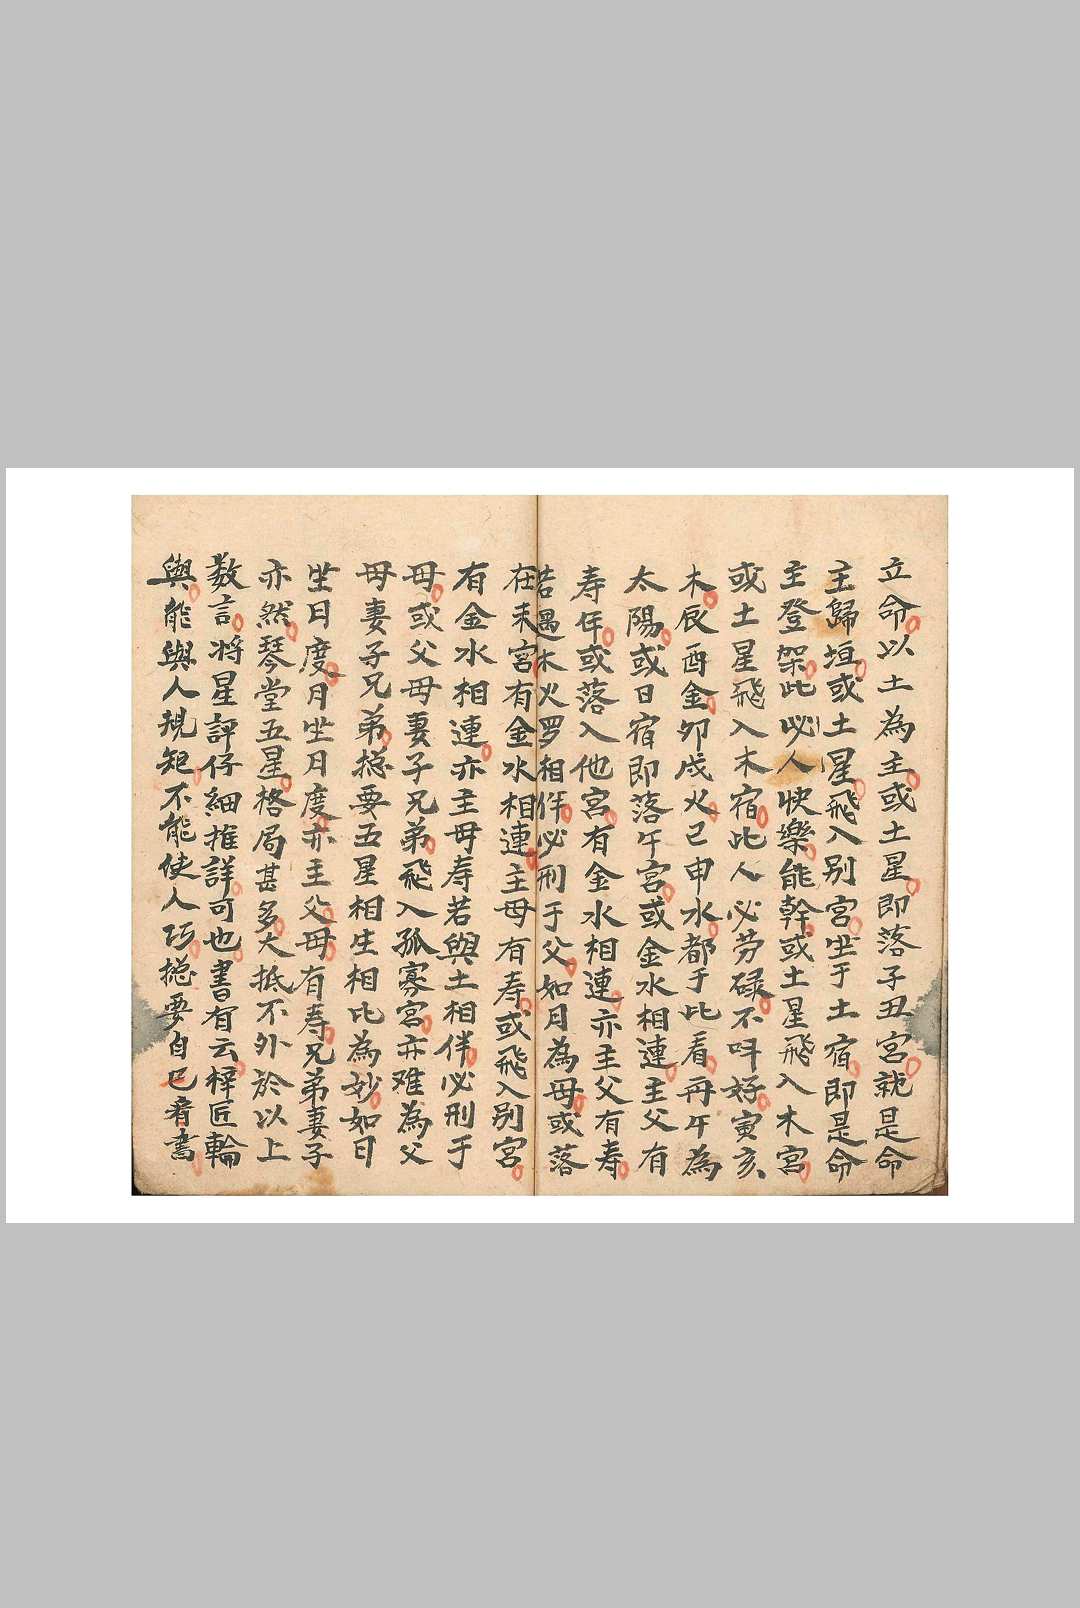 立命以土為主或土星即落子丑宮就是命
主歸垣或土星飛入别宮坐于土宿即是命
主登架此必人快樂能幹或土星飛入木宮
或土星飛入木宿此人必劳碌不呌好寅亥
木辰酉金卯戌火巳申水都于此看再午為
太陽或日宿即落午宮或金水相連主父有
寿年或落入他宮有金水相連亦主父有寿
若遇木火罗相伴必刑于父如月為母或落
在未宮有金水相連主母有寿或飛入别宮
有金水相連亦主母寿若與土相伴必刑于
母或父母妻子兄弟飛入孤寡宮亦难為父
母妻子兄弟捴要五星相生相比為妙如日
坐日度月坐月度亦主父母有寿兄弟妻子
亦然琴堂五星格局甚多大抵不外於以上
数言将星評仔細推詳可也書有云梓匠輪
輿能與人規矩不能使人巧捴要自己看書